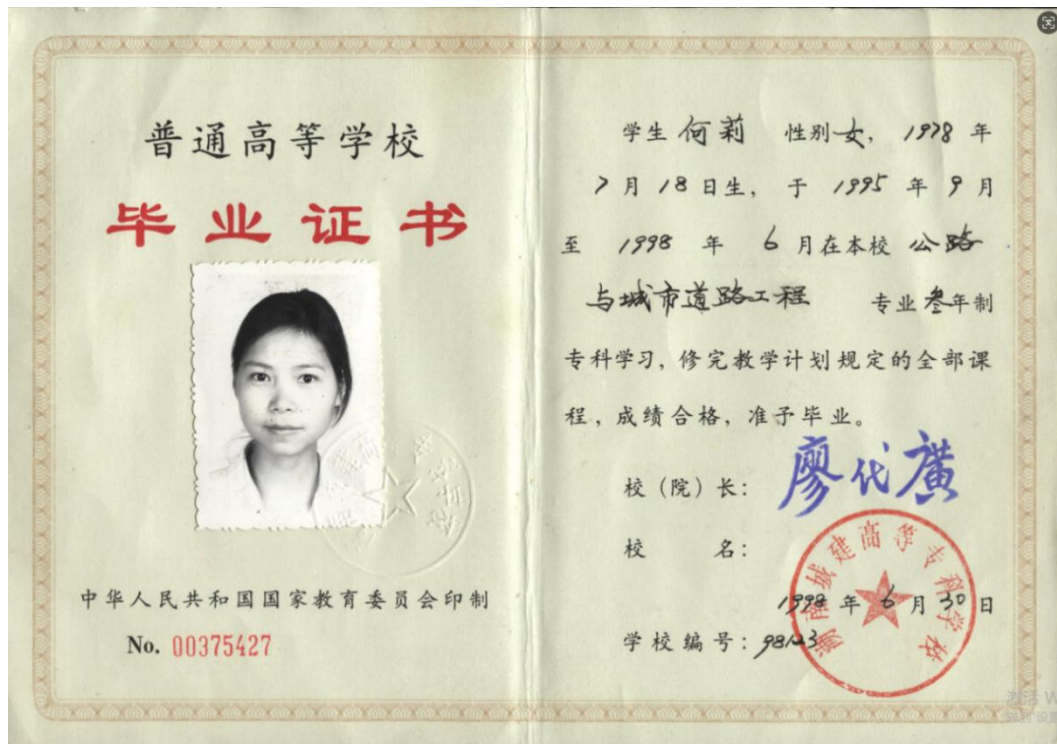 普通高等学校
毕业证书
中华人民共和国国家教育委员会印制
No. 00375427
学生 何莉 性别 女, 1978 年
7 月 18 日生, 于 1995 年 9 月
至 1998 年 6 月在本校 公路
与城市道路工程 专业 叁年制
专科学习, 修完教学计划规定的全部课
程, 成绩合格, 准予毕业。
校（院）长: 廖代广
校 名:
湖南城建高等专科学校
1998 年 6 月 30 日
学校编号: 98123
激活 W